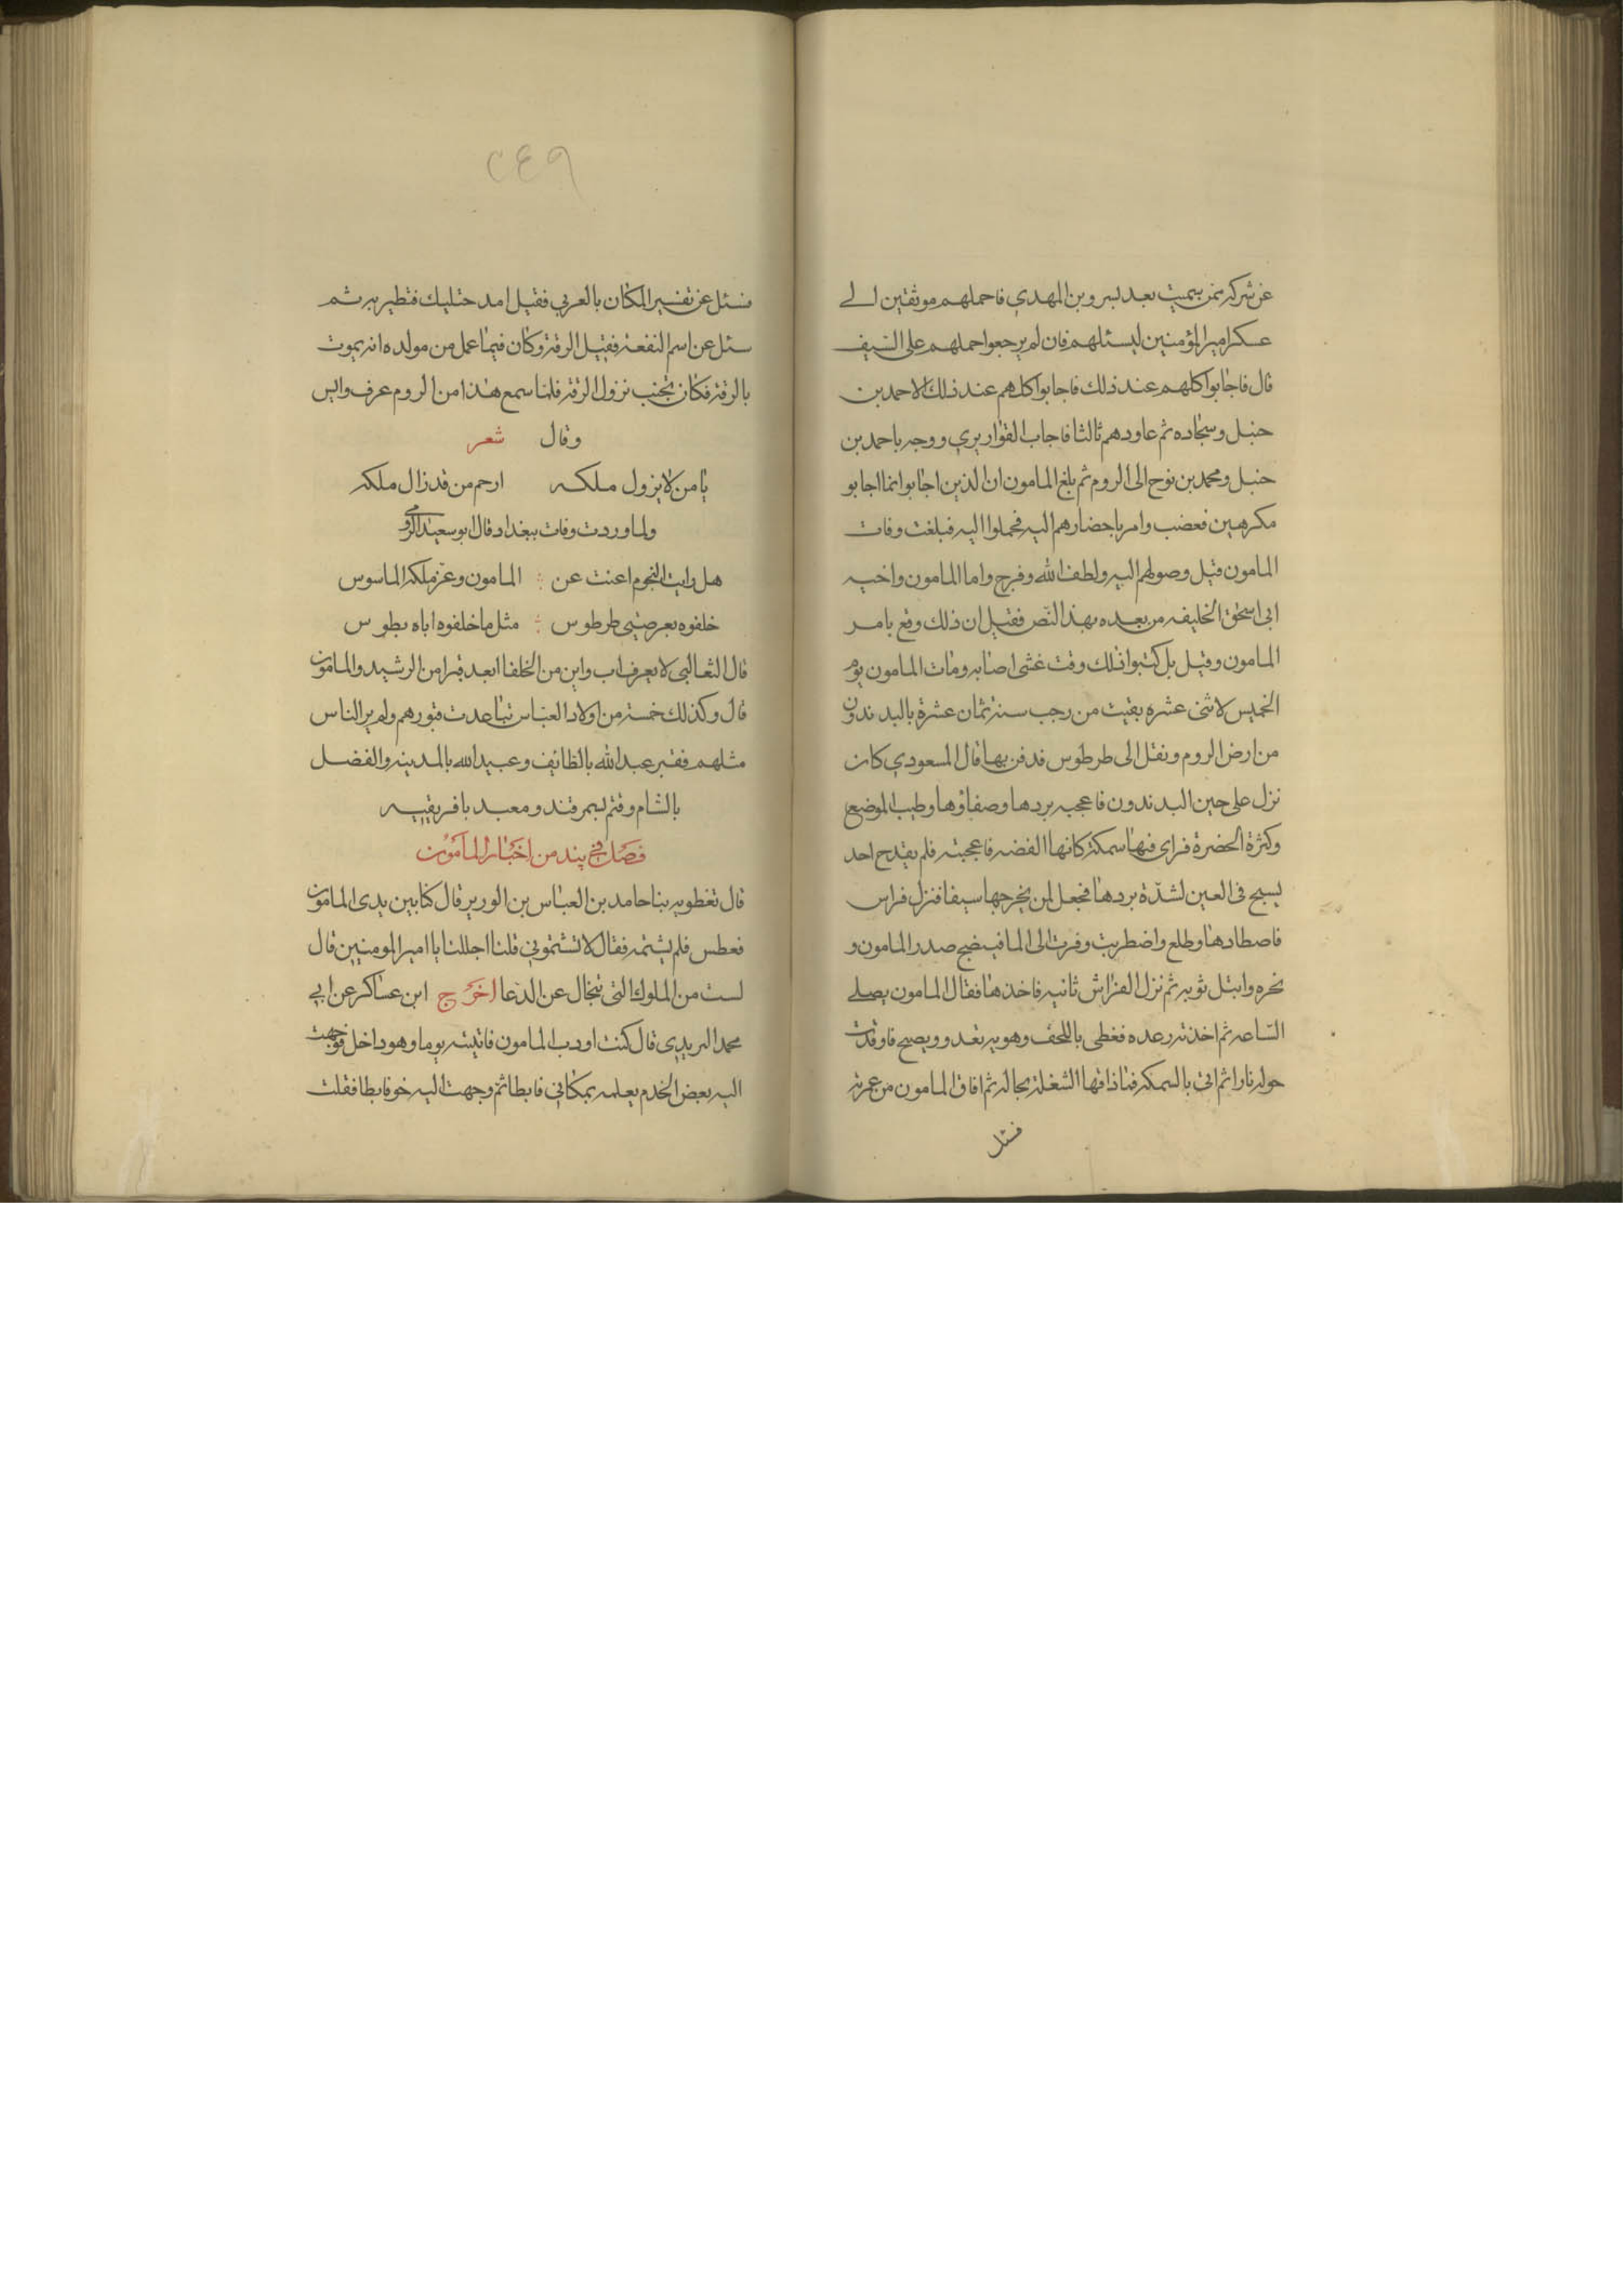 عن شركه ممن سميت بعد بسر وبن المهدي فاحملهم موثقين الى
عسكر امير المؤمنين ليسئلهم فان لم يرجعوا حملهم على السيف
قال فاجابوا كلهم عند ذلك فاجابوا كلهم عند ذلك الا احمد بن
حنبل وسجاده ثم عاودهم ثالثا فاجاب القواريري ووجه باحمد بن
حنبل ومحمد بن نوح الى الروم ثم بلغ المامون ان الذين اجابوا انما اجابو
مكرهين فغضب وامر باحضارهم اليه فحملوا اليه فبلغت وفات
المامون قبل وصولهم اليه ولطف الله وفرج واما المامون واخيه
ابى اسحق الخليفه من بعده بهذا النص فقيل ان ذلك وقع بامر
المامون وقيل بل كتبوا ذلك وقت غشى اصابه ومات المامون يوم
الخميس لاثنى عشره بقيت من رجب سنة ثمان عشرة بالبدندون
من ارض الروم ونقل الى طرطوس فدفن بها قال المسعودي كان
نزل على حين البدندون فاعجبه بردها وصفاؤها وطيب الموضع
وكثرة الخضرة فراى فيها سمكة كانها الفضه فاعجبته فلم يقدح احد
يسبح فى العين لشدة بردها فجعل لمن يخرجها سيفا فنزل فراس
فاصطادها وطلع واضطربت وفرت الى الما فينضح صدر المامون و
نحره وابتل ثوبه ثم نزل الفراش ثانيه فاخذها فقال المامون يصلى
الساعه ثم اخذته رعده فغطى باللحف وهو يرتعد ويصيح فاوقدت
حوله نارا ثم اتى بالسمكه فما ذاقها الشغلة بحاله ثم افاق المامون من غمرته
فسئل
٢٤٩
فسئل عن تفسير المكان بالعربي فقيل امد حتليك فتطير به ثم
سئل عن اسم النفعة فقيل الرقة وكان فيما عمل من مولده انه يموت
بالرقة فكان تجنب نزول الرقة فلما سمع هذا من الروم عرف وايس
وقال شعر
يا من لا يزول ملكه ارحم من قد زال ملكه
ولما وردت وفات ببغداد قال ابو سعيد
هل رايت النجوم اعنت عن المامون وعز ملكه الماسوس
خلفوه بعرصتى طرطوس مثل ما خلفوه اباه بطوس
قال الثعالبى لا يعرف اب وابن من الخلفا ابعد قبرا من الرشيد والمامون
قال وكذلك خمسة من اولاد العباس تباعدت قبورهم ولم ير الناس
مثلهم فقبر عبد الله بالطائيف وعبيد الله بالمدينه والفضل
بالشام وقثم بسمرقند ومعبد بافريقيه
فصل في بند من اخبار المامون
قال نفطويه بنا حامد بن العباس بن الورير قال كنا بين يدى المامون
فعطس فلم يشتمه فقال لا تشتموني قلنا اجللنا يا امير المومنين قال
لست من الملوك التى تتجال عن الدعا اخرج ابن عساكر عن ابي
محمد اليزيدى قال كنت اودب المامون فاتيته يوما وهو داخل فوجهت
اليه بعض الخدم يعلمه بمكاني فابطا ثم وجهت اليه خوفا بطا فقلت